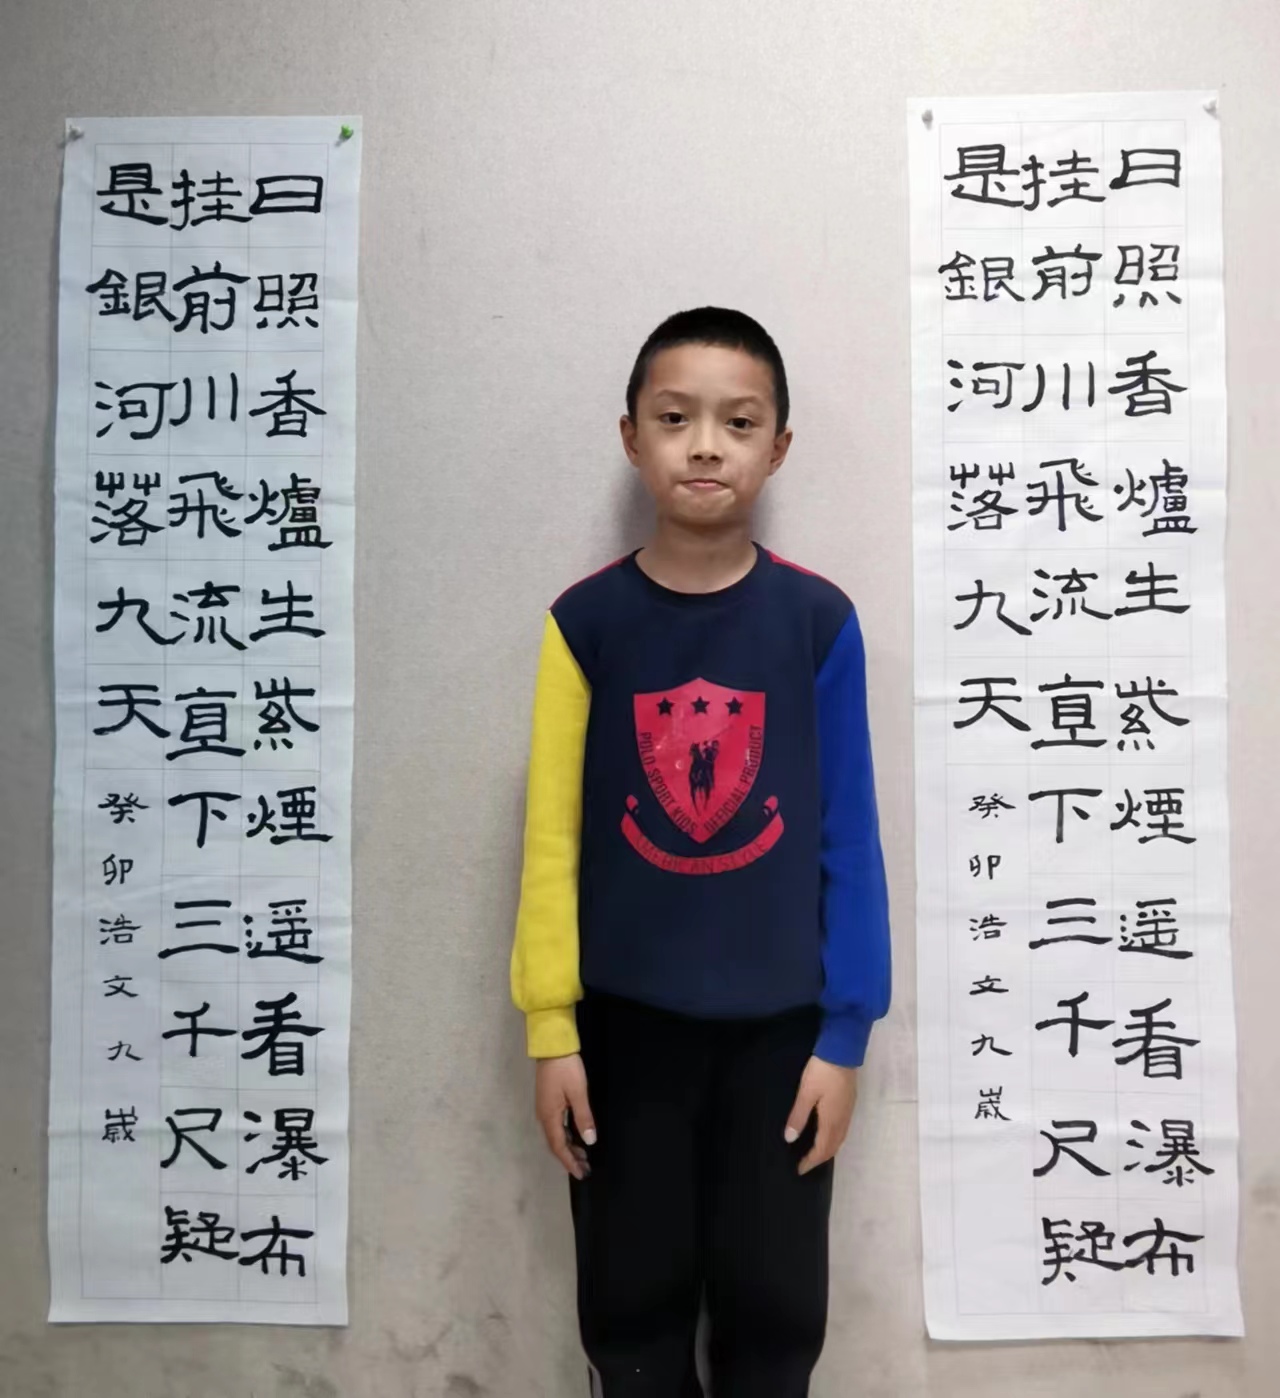 日照香爐生紫煙遥看瀑布
挂前川飛流直下三千尺疑
是銀河落九天
癸卯浩文九歲
POLO SPORT KIDS OFFICIAL PRODUCT
AMERICAN STYLE
日照香爐生紫煙遥看瀑布
挂前川飛流直下三千尺疑
是銀河落九天
癸卯浩文九歲